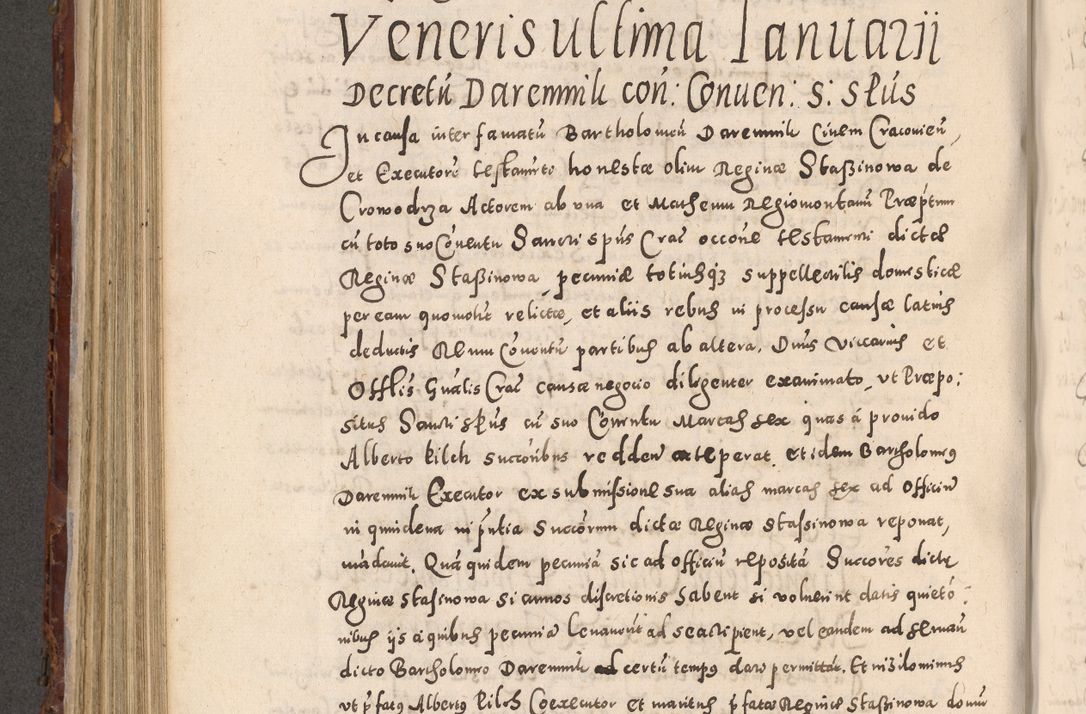 Veneris ultima Ianuarii
Decretũ Daremnik coñ: Conuen: S: Spũs
In causa inter famatũ Bartholomeũ Daremnik Ciuem Cracouieñ,
et Executorẽ testamẽti honestæ olim Reginæ Staßinowa de
Crowodrza Actorem ab vna et Mathemu Regiomontanũ Præptum
cũ toto suo Cõuentu Sancti spũs Crac̃ occõne testamenti dictæ
Reginæ Staßinowa, pecuniæ totiusq; suppellectilis domesticæ
per eam quomolit relictæ, et aliis rebus in processu causæ latius
deductis Reum Cõuentũ partibus ab altera. Dnus Viccarius et
Offlis Gñalis Crac̃ causæ negocio diligenter exanimato, vt Præpo:
situs Sancti spũs cũ suo Conuentu Marcas sex quas á prouido
Alberto Kilch succõribus redden acceperat, et idem Bartholomeus
Daremnik Executor ex submissione sua alias marcas sex ad Officiũ
in quindena in p̃ntia Succõrum dictæ Reginæ Stassinowa reponat,
mãdauit. Quã quidem pecuniã sic ad officiũ repositã Succores dictę
Reginæ Stasinowa si annos discretionis habent si voluerint datis quietõ:
nibus ijs á quibus pecuniã leuauerit ad se accipient, vel eandem ad seruañ
dicto Bartholomeo Daremnik ad certũ tempus dare permittãt. Et nihilominus
vt p̃fatus Albertus Kilch Coexecutor et maritus p̃fatæ Reginæ Staßinowa domũ